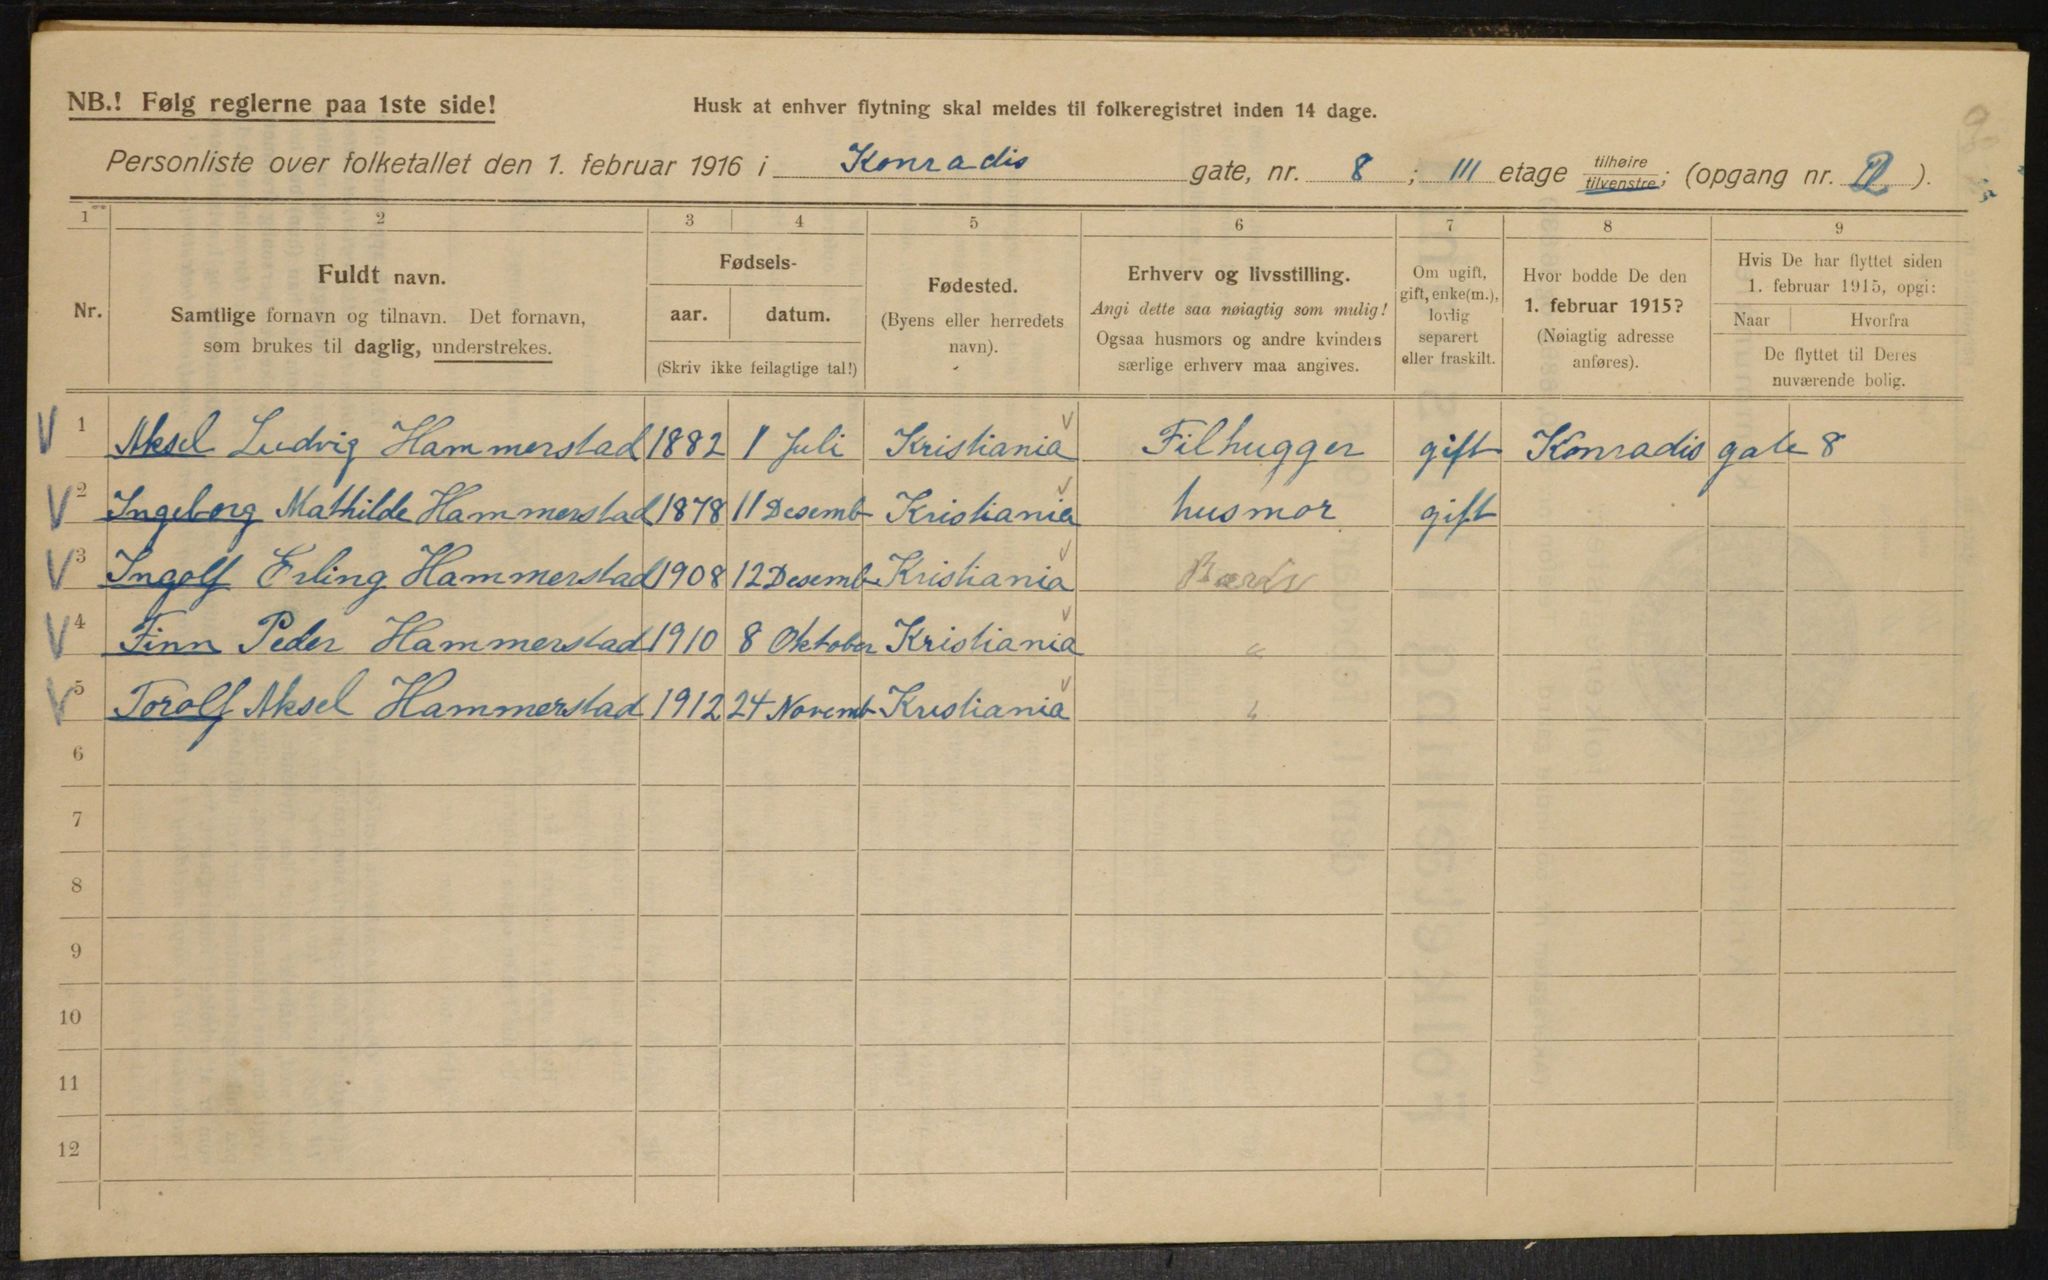 NB.! Følg reglerne paa 1ste side!
Husk at enhver flytning skal meldes til folkeregistret inden 14 dage.
Personliste over folketallet den 1. februar 1916 i Konradis gate, nr. 8 ; III etage tilhøire tilvenstre; (opgang nr. ).
1 2 3 4 5 6 7 8 9
Nr.
Fuldt navn.
Samtlige fornavn og tilnavn. Det fornavn,
som brukes til daglig, understrekes.
Fødsels-
aar. datum.
(Skriv ikke feilagtige tal!)
Fødested.
(Byens eller herredets
navn).
Erhverv og livsstilling.
Angi dette saa nøiagtig som mulig!
Ogsaa husmors og andre kvinders
særlige erhverv maa angives.
Om ugift,
gift, enke(m.),
lovlig
separert
eller fraskilt.
Hvor bodde De den
1. februar 1915?
(Nøiagtig adresse
anføres).
Hvis De har flyttet siden
1. februar 1915, opgi:
Naar Hvorfra
De flyttet til Deres
nuværende bolig.
V 1 Aksel Ludvig Hammerstad 1882 1 Juli Kristiania V Filhugger gift Konradis gate 8
V 2 Ingeborg Mathilde Hammerstad 1878 11 Desemb Kristiania V husmor gift
V 3 Ingolf Erling Hammerstad 1908 12 Desemb Kristiania V
V 4 Finn Peder Hammerstad 1910 8 Oktober Kristiania V "
V 5 Torolf Aksel Hammerstad 1912 24 Novemb Kristiania V "
6
7
8
9
10
11
12